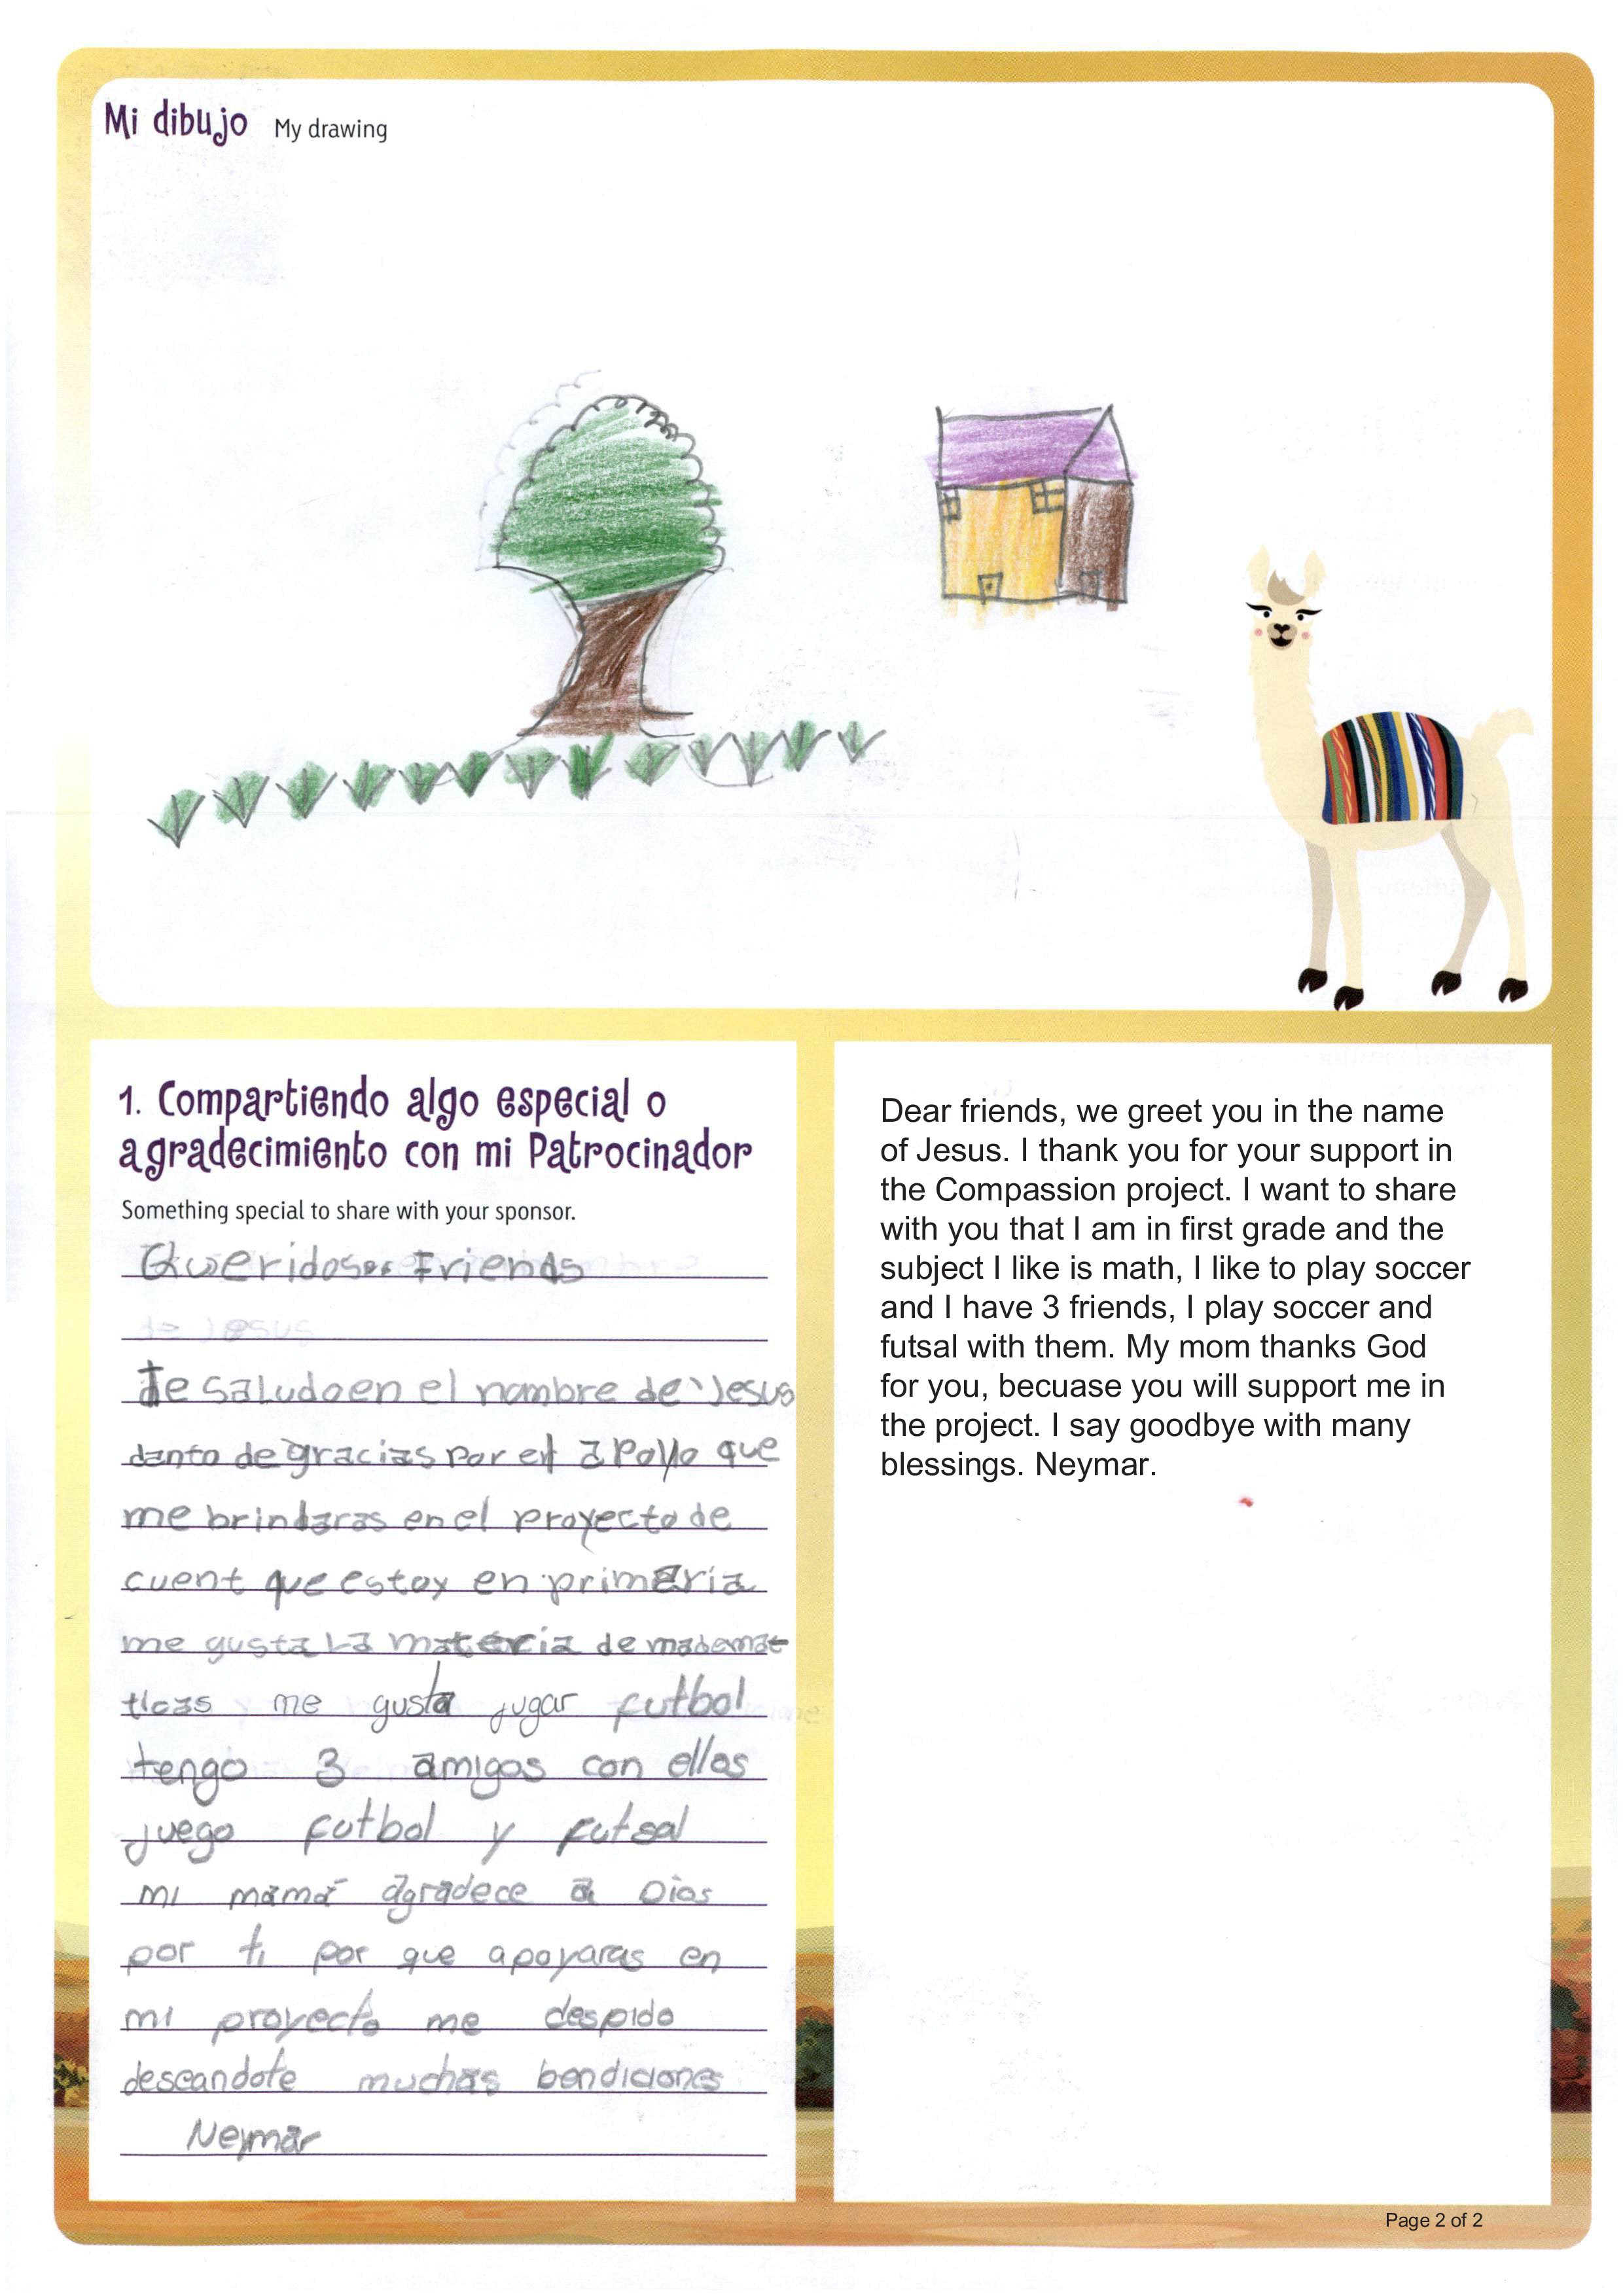 Mi dibujo My drawing
1. Compartiendo algo especial o
agradecimiento con mi Patrocinador
Something special to share with your sponsor.
Queridos Friends
te saludo en el nombre de Jesus
danto de gracias por el apollo que
me brindaras en el proyecto de
cuent que estoy en primaria
me gusta la materia de
ticas me gusta jugar futbol
tengo 3 amigos con ellos
juego futbol y futsal
mi mamá agradece a Dios
por ti por que apoyaras en
mi proyecto me despido
deseandote muchas bendiciones
Neymar
Dear friends, we greet you in the name
of Jesus. I thank you for your support in
the Compassion project. I want to share
with you that I am in first grade and the
subject I like is math, I like to play soccer
and I have 3 friends, I play soccer and
futsal with them. My mom thanks God
for you, becuase you will support me in
the project. I say goodbye with many
blessings. Neymar.
Page 2 of 2